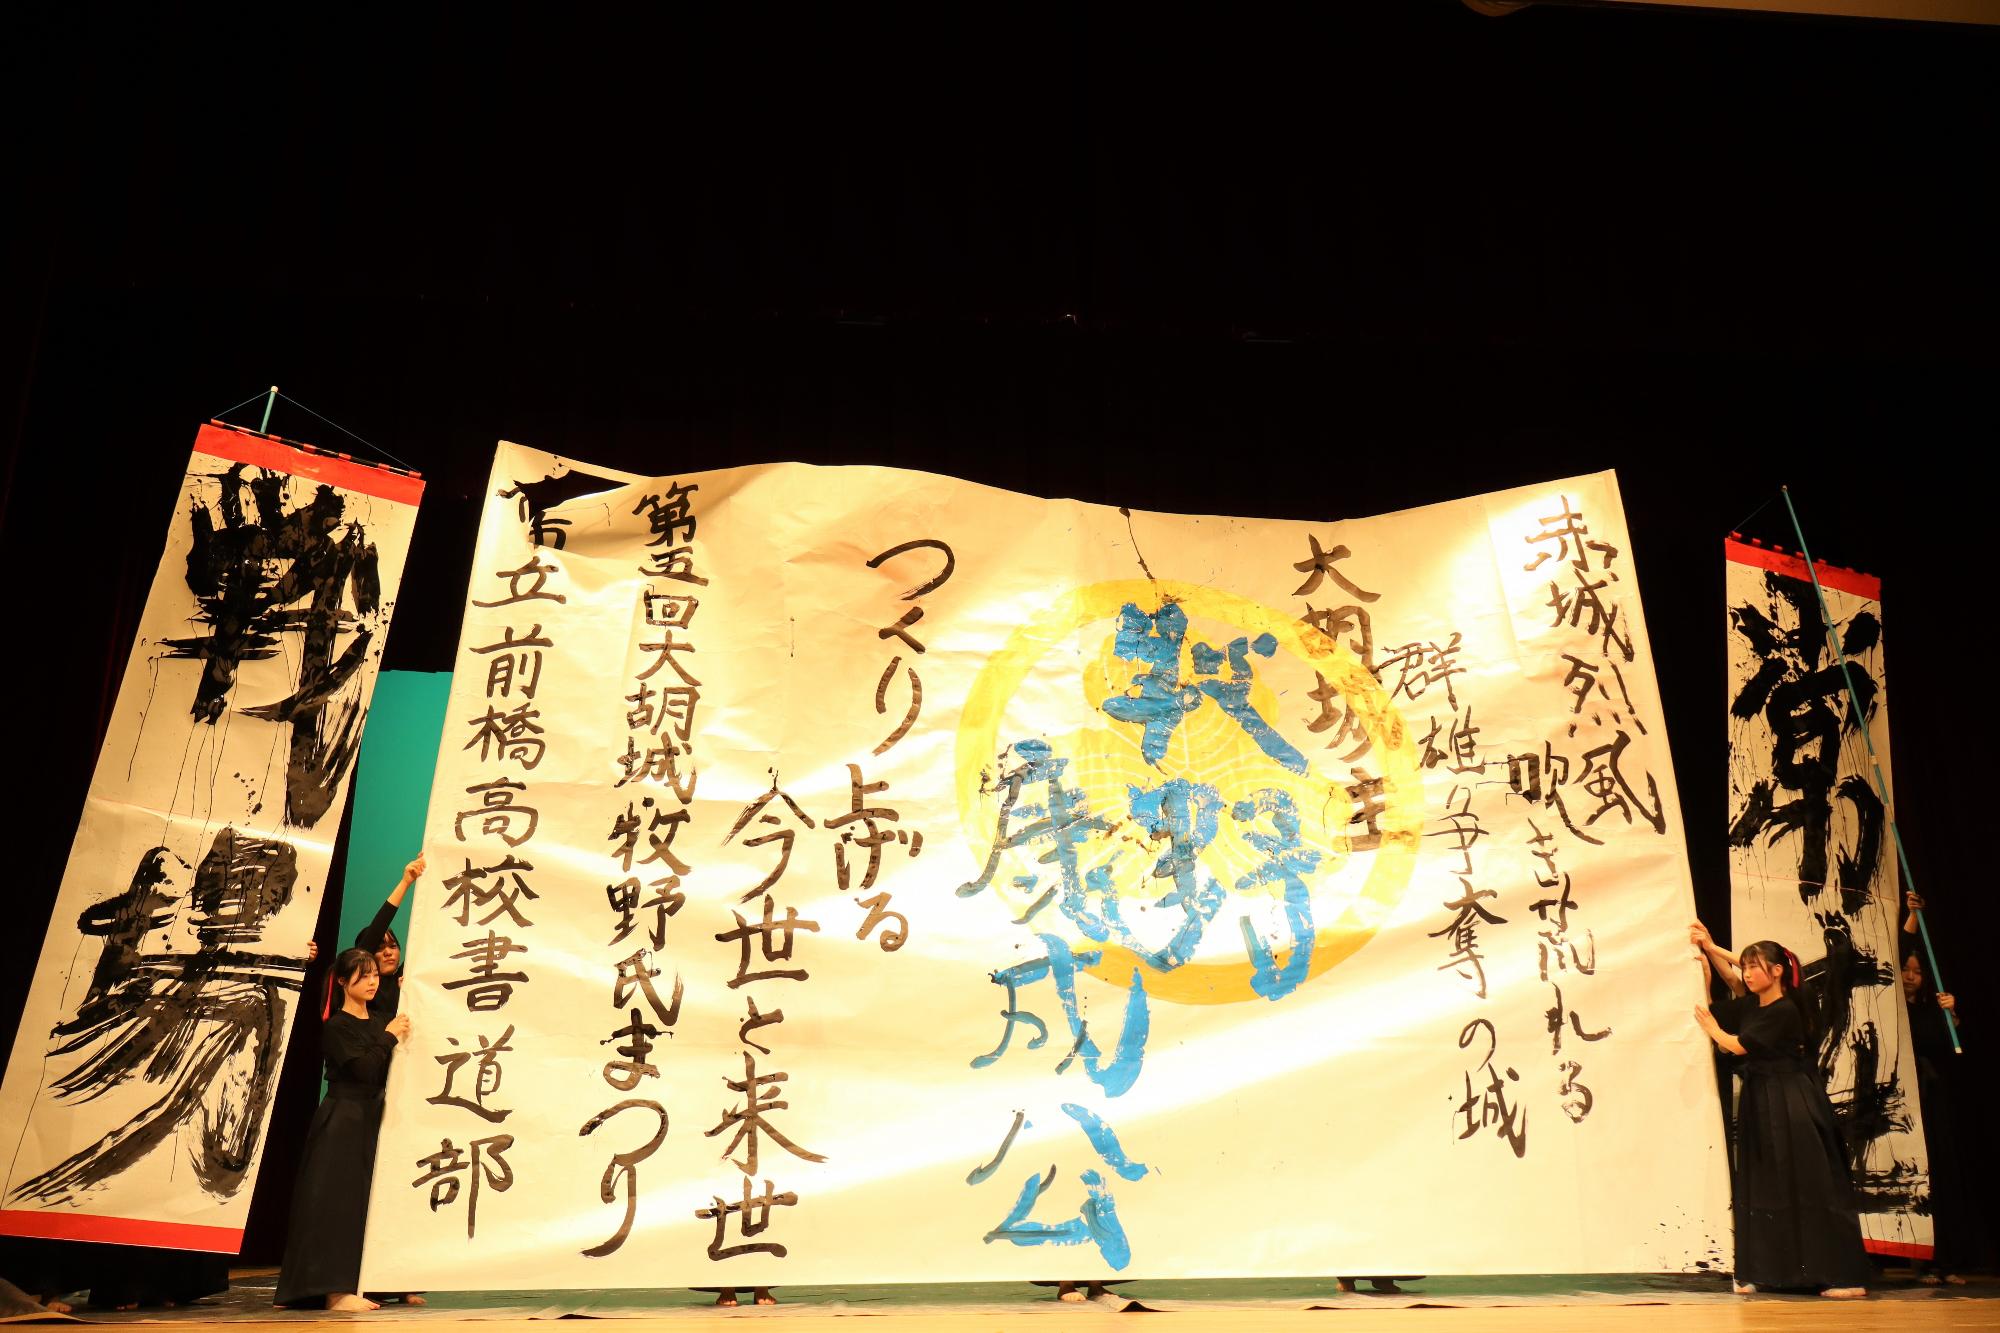 赤城烈風
吹きすさ荒れる
群雄争奪の城
大胡城主
牧野
康成公
つくり上げる
今世と来世
第五回大胡城牧野氏まつり
市立前橋高校書道部
戦場